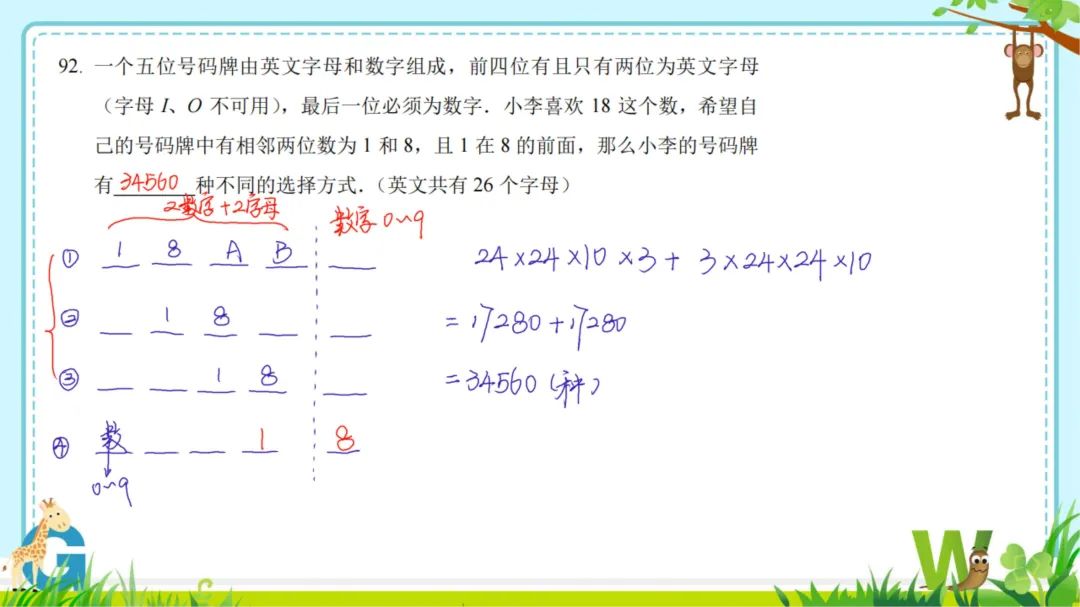 92. 一个五位号码牌由英文字母和数字组成，前四位有且只有两位为英文字母
（字母 I、O 不可用），最后一位必须为数字．小李喜欢 18 这个数，希望自
己的号码牌中有相邻两位数为 1 和 8，且 1 在 8 的前面，那么小李的号码牌
有 34560 种不同的选择方式．（英文共有 26 个字母）
2数字+2字母 数字0~9
① 1 8 A B
24×24×10×3+3×24×24×10
② 1 8
=17280+17280
③ 1 8
=34560(种)
④ 数 1 8
0~9
G
W